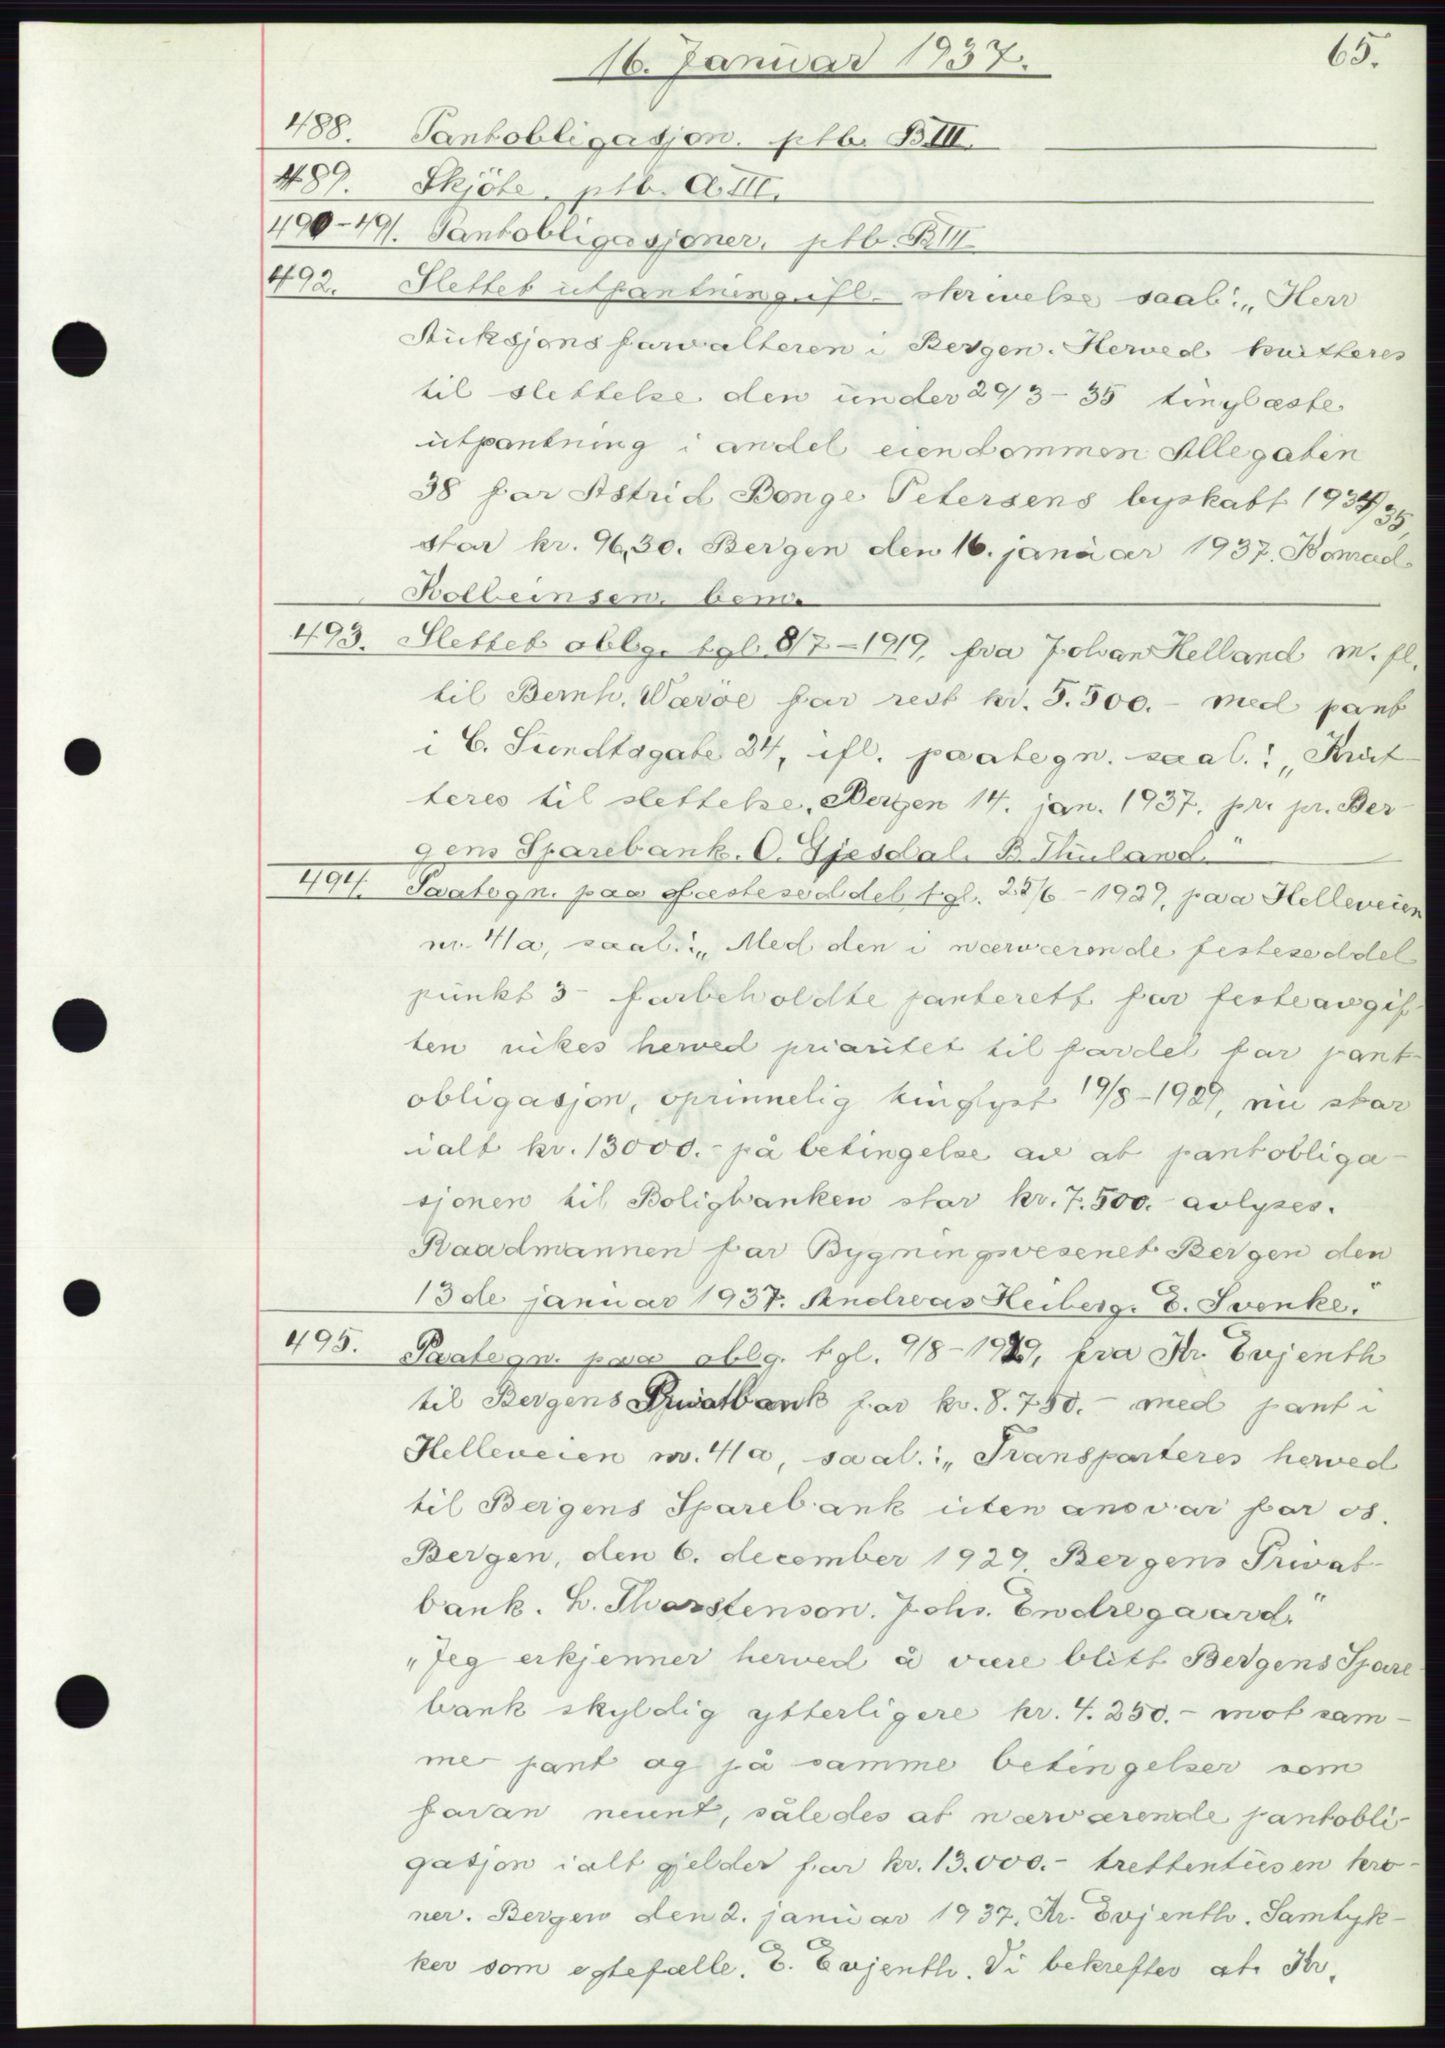 16. Januar 1937.
65.
488. Pantobligasjon. ptb. B.III.
489. Skjöte. ptb. A.III.
490-491. Pantobligasjoner. ptb. B.III.
492. Slettet utpantning ifl. skrivelse saal: „Herr
Auksjonsforvalteren i Bergen. Herved kvitteres
til slettelse den under 29/3-35 tinglæste
utpantning i andel eiendommen Allegaten
38 for Astrid Bonge Petersens byskatt 1934/35,
stor kr. 96,30. Bergen den 16. januar 1937. Konrad
Kolbeinsen. bem.
493. Slettet oblg. tgl. 8/7-1919, fra Johan Helland m. fl.
til Bernh. Wæröe for rest kr. 5.500.- med pant
i C. Sundtsgate 24, ifl. paategn. saal.: „Kvit-
teres til slettelse. Bergen 14. jan. 1937. pr. pr. Ber-
gens Sparebank. O. Gjesdal. B. Thuland."
494. Paategn. paa festeseddel tgl. 22/6-1929, paa Helleveien
nr. 41a, saal.: „Med den i nærværende festeseddel
punkt 3 - forbeholdte panterett for festeavgif-
ten vikes herved prioritet til fordel for pant-
obligasjon, oprinnelig tinglyst 19/8-1929, nu stor
ialt kr. 13000.- på betingelse av at pantobliga-
sjonen til Boligbanken stor kr. 7.500.- avlyses.
Raadmannen for Bygningsvesenet Bergen den
13de januar 1937. Andreas Heiberg. E. Svenke."
495. Paategn. paa oblg. tgl. 9/8-1929, fra Kr. Evjenth
til Bergens Privatbank for kr. 8.750.- med pant i
Helleveien nr. 41a, saal.: „Transporteres herved
til Bergens Sparebank uten ansvar for os.
Bergen, den 6. december 1929. Bergens Privat-
bank. L. Thorstenson. Johs. Endregaard."
„Jeg erkjenner herved å være blitt Bergens Spare-
bank skyldig ytterligere kr. 4.250.- mot sam-
me pant og på samme betingelser som
foran nevnt, således at nærværende pantobli-
gasjon ialt gjelder for kr. 13.000.- trettentusen kro-
ner. Bergen den 2. januar 1937. Kr. Evjenth. Samtyk-
ker som egtefælle. E. Evjenth. Vi bekrefter at Kr.